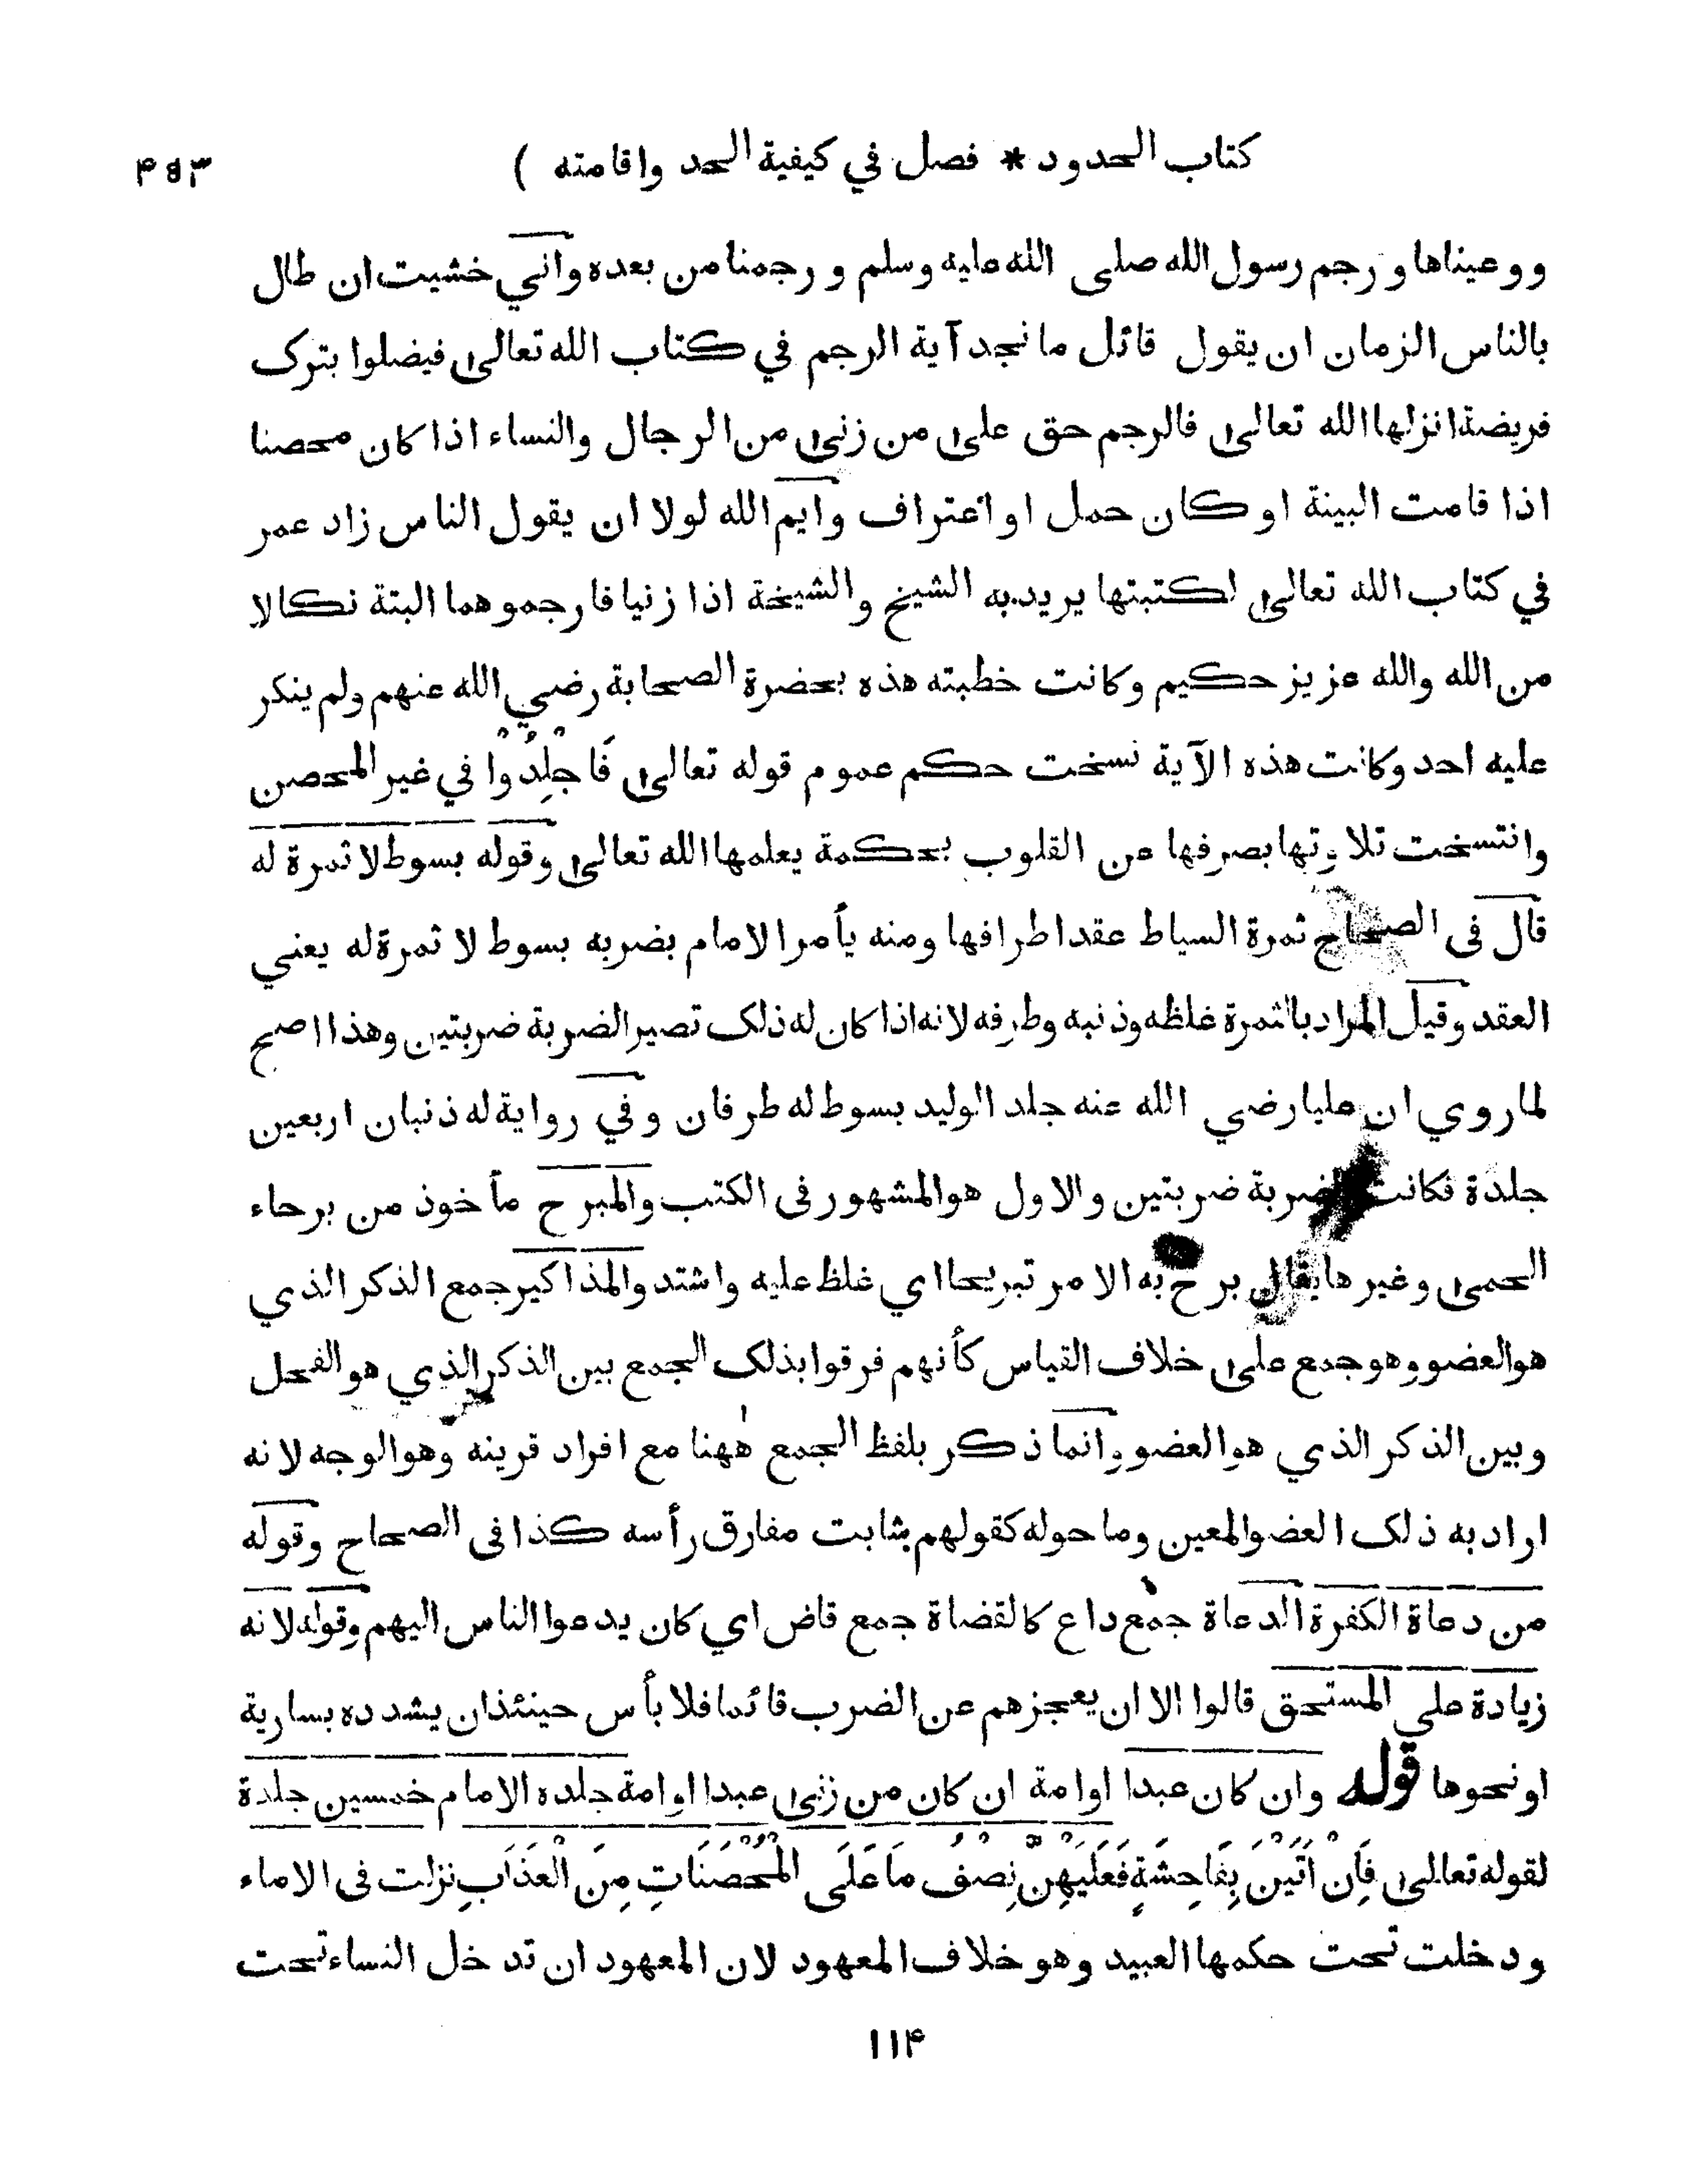 كتاب الحدود * فصل في كيفية الحد واقامته )
٤٥٣
ووعيناها ورجم رسول الله صلى الله عليه وسلم ورجمنا من بعده واني خشيت ان طال
بالناس الزمان ان يقول قائل ما نجد آية الرجم في كتاب الله تعالى فيضلوا بترك
فريضة انزلها الله تعالى فالرجم حق على من زنى من الرجال والنساء اذا كان محصنا
اذا قامت البينة او كان حمل او اعتراف وايم الله لولا ان يقول الناس زاد عمر
في كتاب الله تعالى لكتبتها يريد به الشيخ والشيخة اذا زنيا فارجموهما البتة نكالا
من الله والله عزيز حكيم وكانت خطبته هذه بحضرة الصحابة رضي الله عنهم ولم ينكر
عليه احد وكانت هذه الآية نسخت حكم عموم قوله تعالى فَاجْلِدُوْا في غير المحصن
وانتسخت تلاوتها بصرفها عن القلوب بحكمة يعلمها الله تعالى وقوله بسوط لا ثمرة له
قال فى الصحاح ثمرة السياط عقد اطرافها ومنه يأمر الامام بضربه بسوط لا ثمرة له يعني
العقد وقيل المراد بالثمرة غلظه وذنبه وطرفه لانه اذا كان له ذلك تصير الضربة ضربتين وهذا اصح
لما روي ان عليا رضي الله عنه جلد الوليد بسوط له طرفان وفي رواية له ذنبان اربعين
جلدة فكانت الضربة ضربتين والاول هو المشهور فى الكتب والمبرح مأخوذ من برحاء
الحمى وغيرها يقال برح به الامر تبريحا اي غلظ عليه واشتد والمذاكير جمع الذكر الذي
هو العضو وهو جمع على خلاف القياس كأنهم فرقوا بذلك الجمع بين الذكر الذي هو الفحل
وبين الذكر الذي هو العضو وانما ذكر بلفظ الجمع ههنا مع افراد قرينه وهو الوجه لانه
اراد به ذلك العضو المعين وما حوله كقولهم شابت مفارق رأسه كذا فى الصحاح وقوله
من دعاة الكفرة الدعاة جمع داع كالقضاة جمع قاض اي كان يدعوا الناس اليهم وقوله لانه
زيادة على المستحق قالوا الا ان يعجزهم عن الضرب قائما فلا بأس حينئذ ان يشدده بسارية
او نحوها قوله وان كان عبدا او امة ان كان من زنى عبدا او امة جلده الامام خمسين جلدة
لقوله تعالى فَاِنْ اَتَيْنَ بِفَاحِشَةٍ فَعَلَيْهِنَّ نِصْفُ مَا عَلَى الْمُحْصَنَاتِ مِنَ الْعَذَابِ نزلت فى الاماء
ودخلت تحت حكمها العبيد وهو خلاف المعهود لان المعهود ان تدخل النساء تحت
١١٤